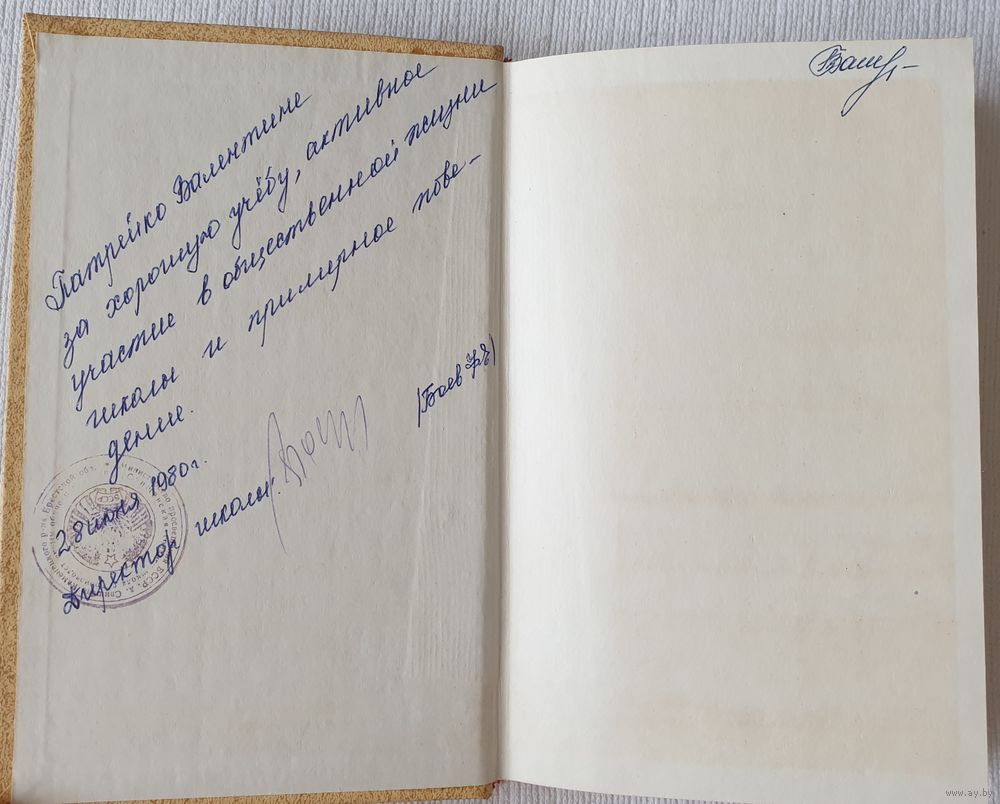 Патрейко Валентине
за хорошую учёбу, активное
участие в общественной жизни
школы и примерное пове-
дение.
28 июня 1980 г.
Директор школы:
БССР
www.ay.by